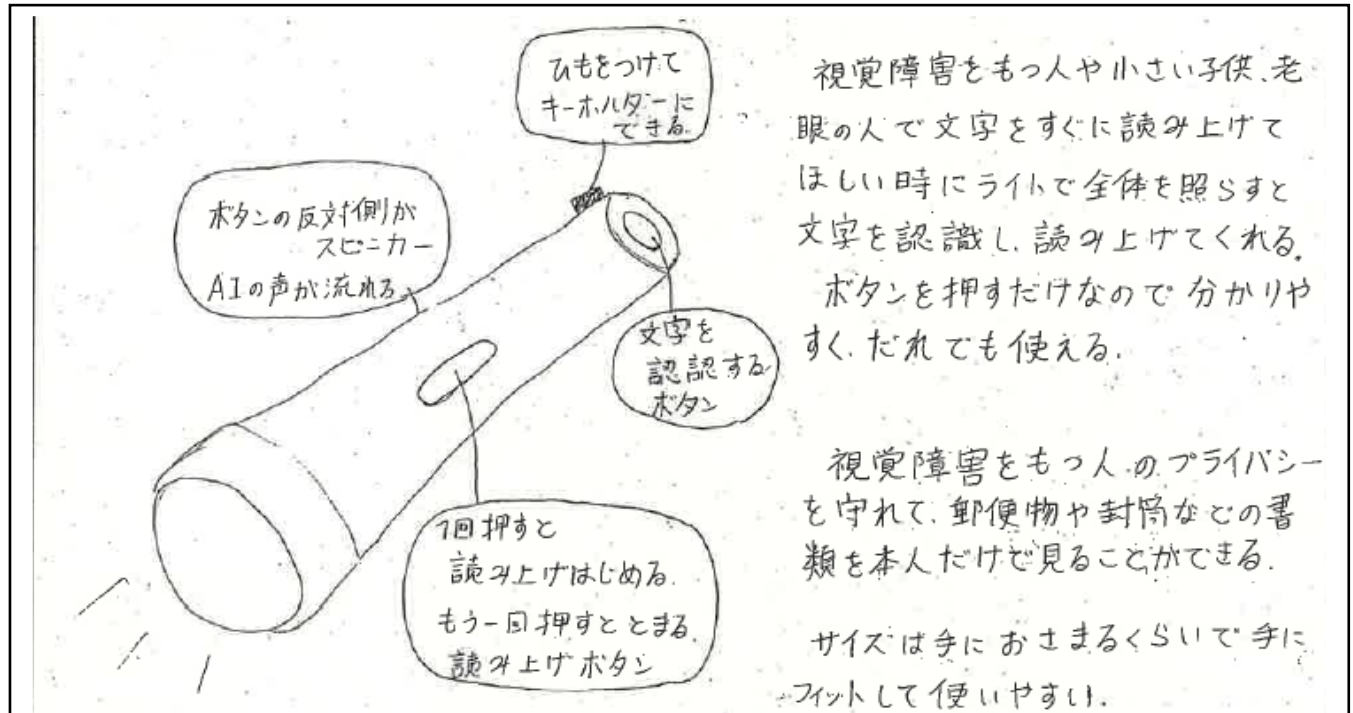 ひもをつけて
キーホルダーに
できる。
ボタンの反対側が
スピーカー
AIの声が流れる
文字を
認認する
ボタン
1回押すと
読み上げはじめる。
もう一回押すととまる。
読み上げボタン
視覚障害をもつ人や小さい子供、老
眼の人で文字をすぐに読み上げて
ほしい時にライトで全体を照らすと
文字を認識し、読み上げてくれる。
ボタンを押すだけなので分かりや
すく、だれでも使える。
視覚障害をもつ人のプライバシー
を守れて、郵便物や封筒などの書
類を本人だけで見ることができる。
サイズは手におさまるくらいで手に
フィットして使いやすい。